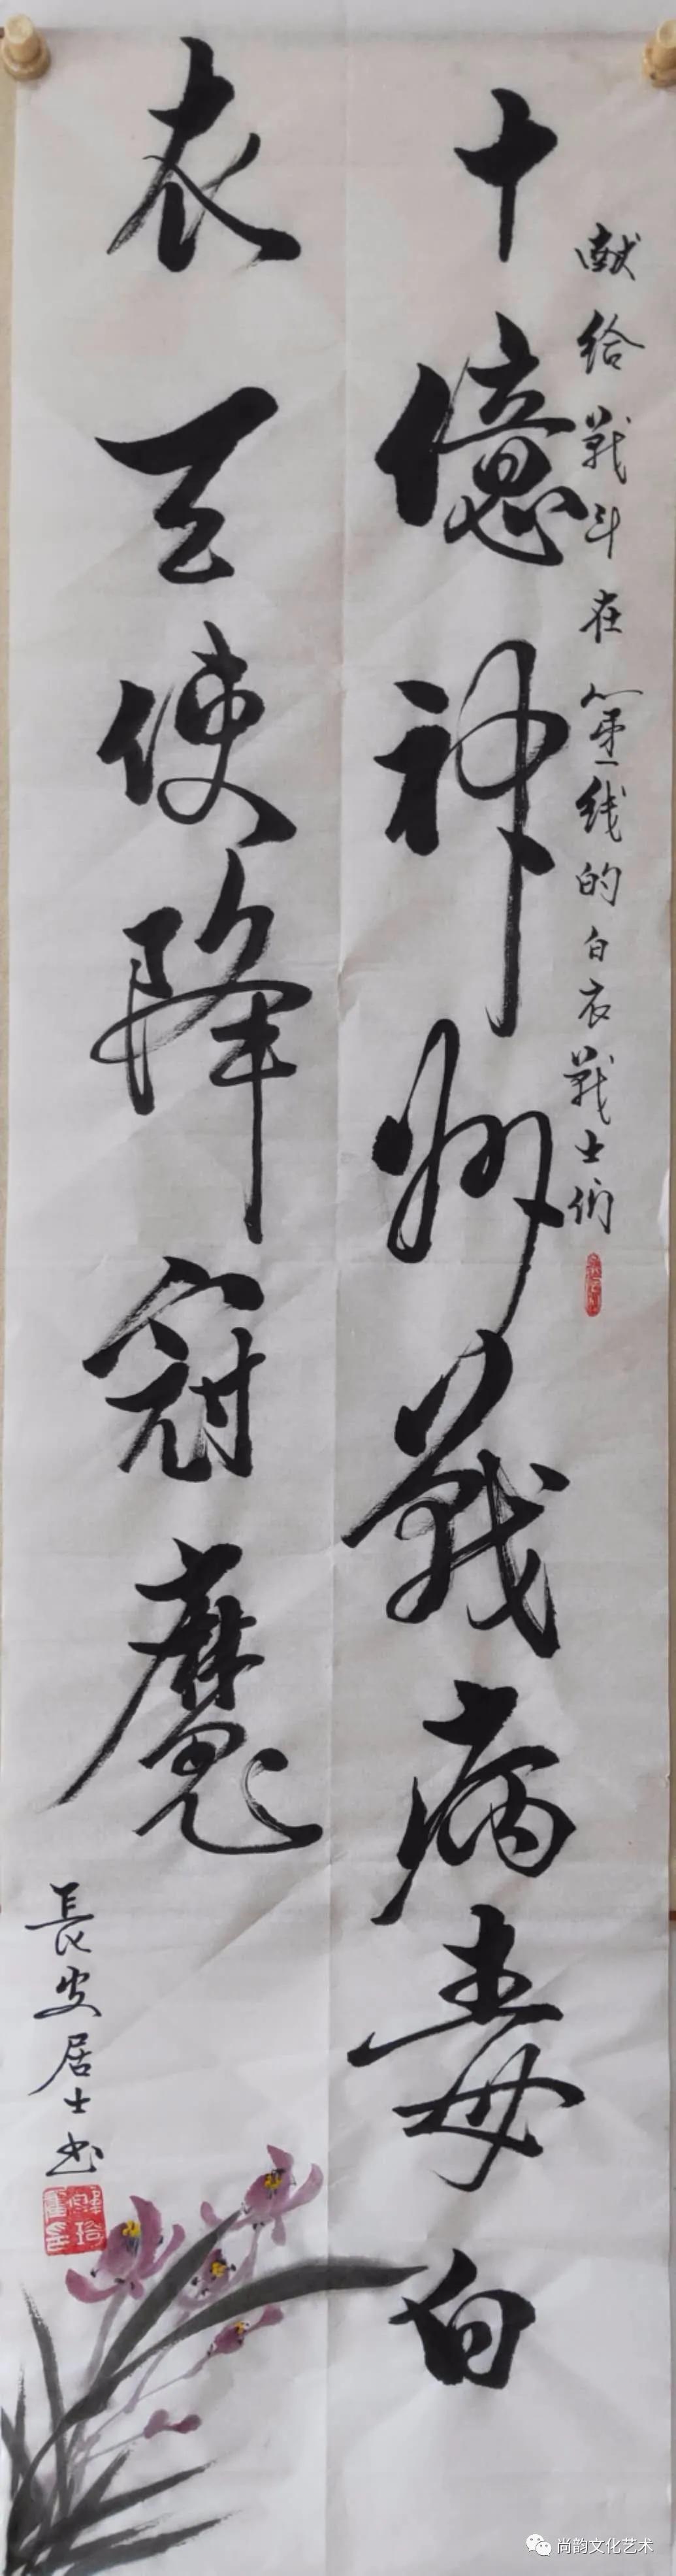 献给战斗在第一线的白衣战士们
十億神州戰病毒白
衣天使降冠魔
長安居士书
尚韵文化艺术